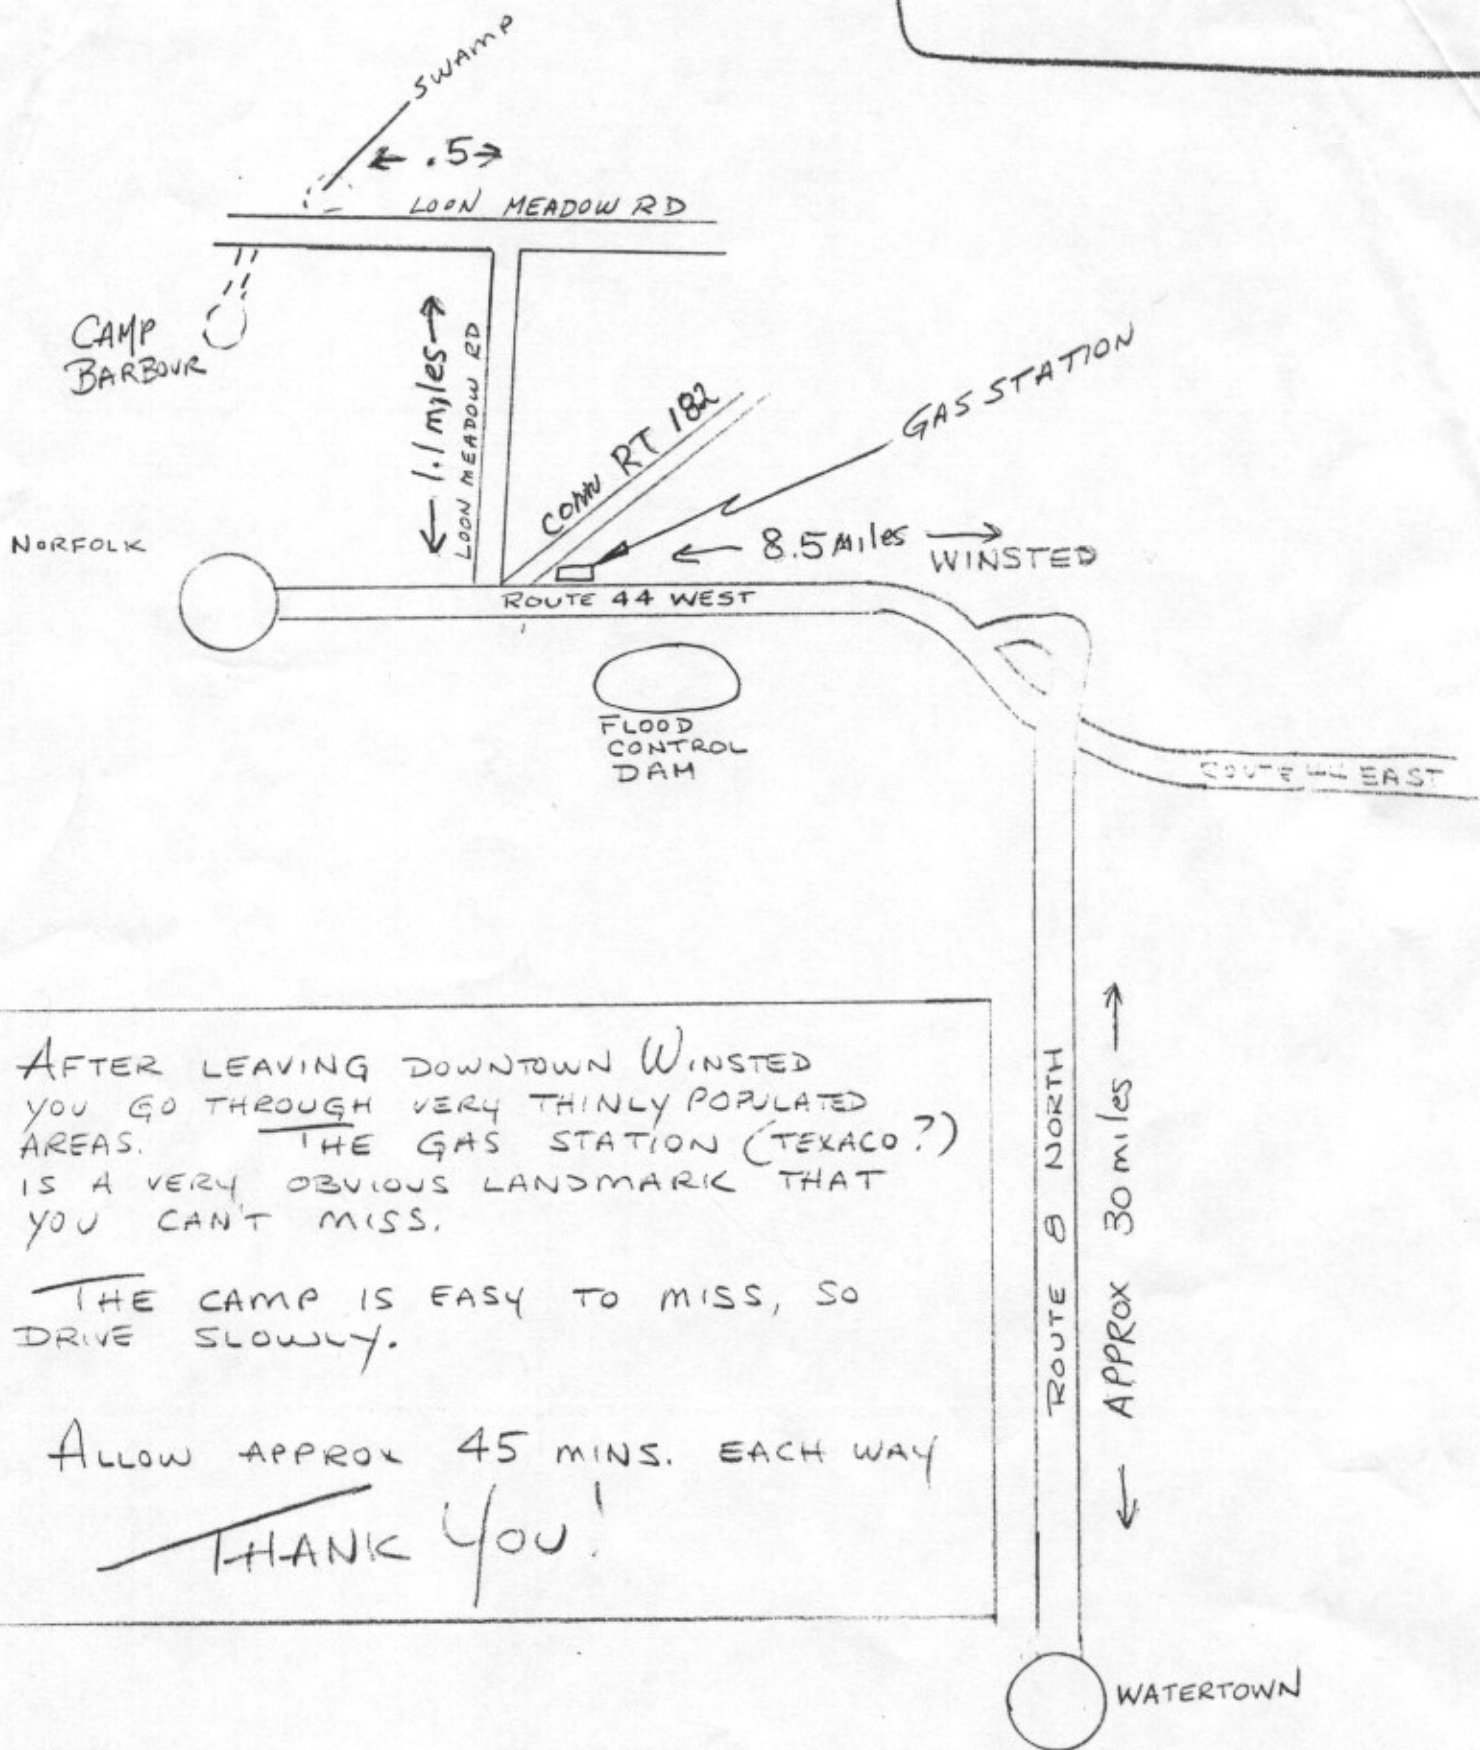 SWAMP
← .5 →
LOON MEADOW RD
CAMP
BARBOUR
← 1.1 miles →
LOON MEADOW RD
CONN RT 182
GAS STATION
NORFOLK
← 8.5 miles →
WINSTED
ROUTE 44 WEST
FLOOD
CONTROL
DAM
ROUTE 44 EAST
AFTER LEAVING DOWNTOWN WINSTED
YOU GO THROUGH VERY THINLY POPULATED
AREAS. THE GAS STATION (TEXACO?)
IS A VERY OBVIOUS LANDMARK THAT
YOU CAN'T MISS.
THE CAMP IS EASY TO MISS, SO
DRIVE SLOWLY.
ALLOW APPROX 45 MINS. EACH WAY
THANK YOU!
ROUTE 8 NORTH
← APPROX 30 miles →
WATERTOWN